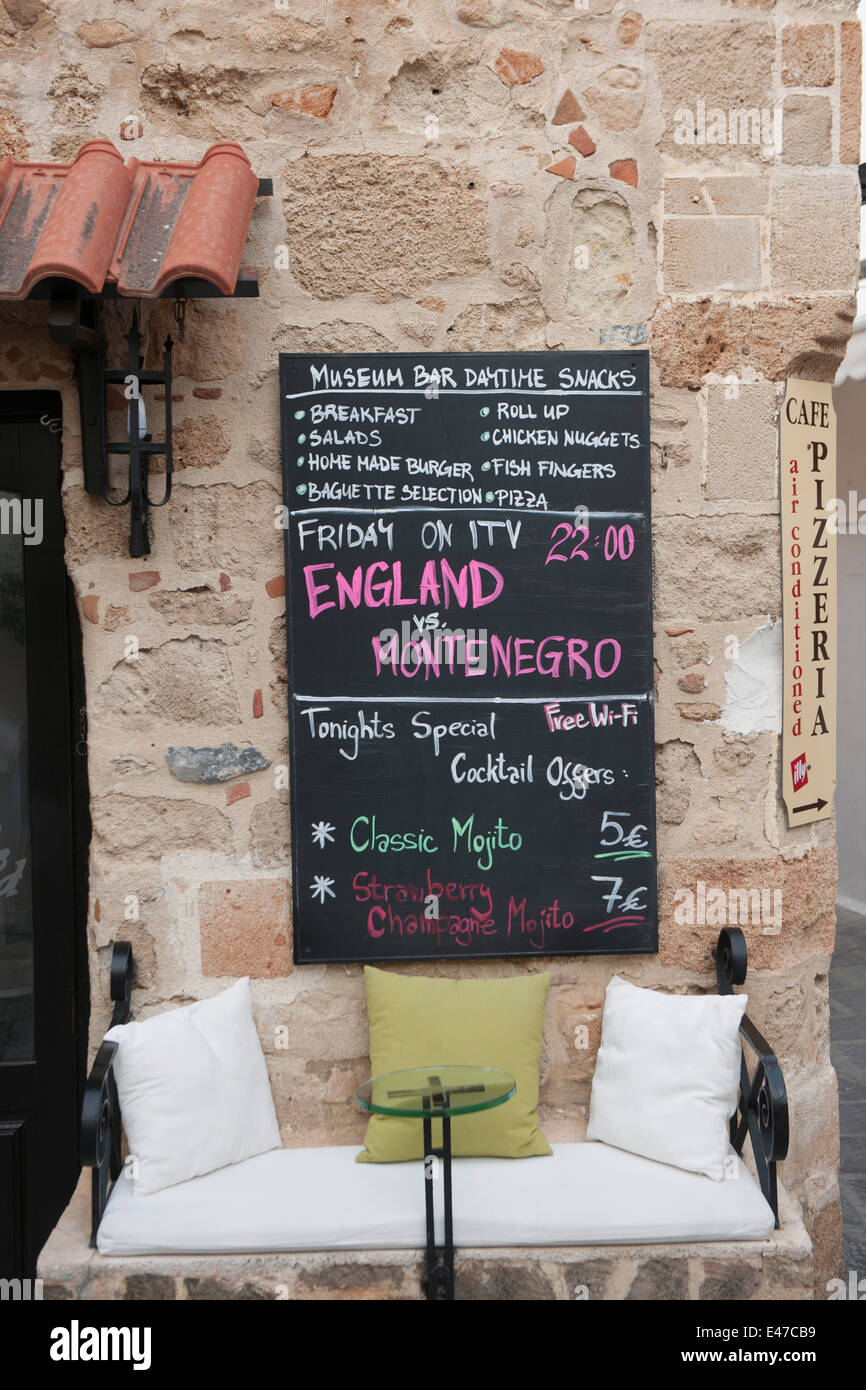 MUSEUM BAR DAYTIME SNACKS
• BREAKFAST
• SALADS
• HOME MADE BURGER
• BAGUETTE SELECTION
• ROLL UP
• CHICKEN NUGGETS
• FISH FINGERS
• PIZZA
FRIDAY ON ITV 22:00
ENGLAND
vs.
MONTENEGRO
Tonights Special Free Wi-Fi
Cocktail Offers:
* Classic Mojito 5€
* Strawberry 7€
Champagne Mojito
CAFE
PIZZERIA
air conditioned
illy
alamy
Image ID: E47CB9
www.alamy.com